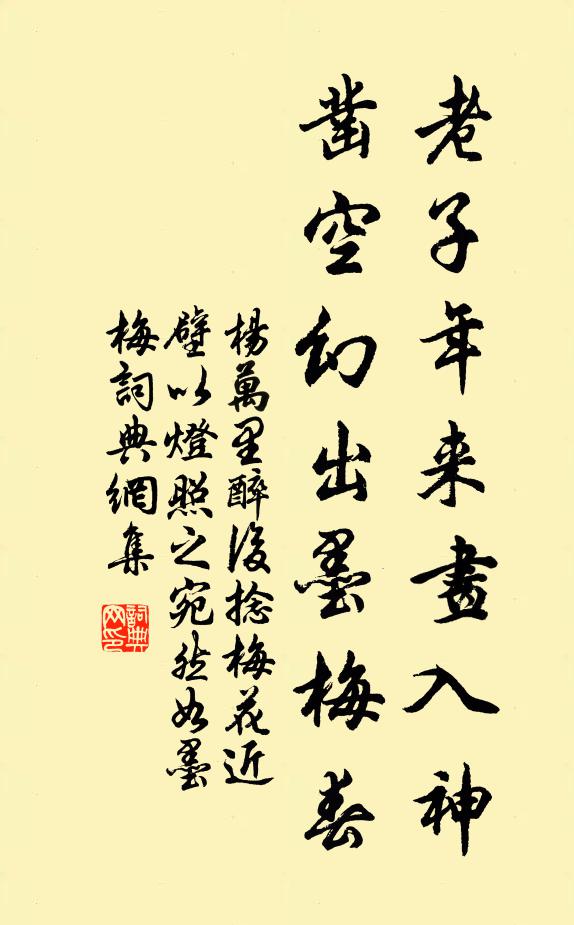 老子年来畫入神
凿空幻出墨梅春
楊萬里醉後捻梅花近
壁以燈照之宛然如墨
梅詞典網集
詞典網印